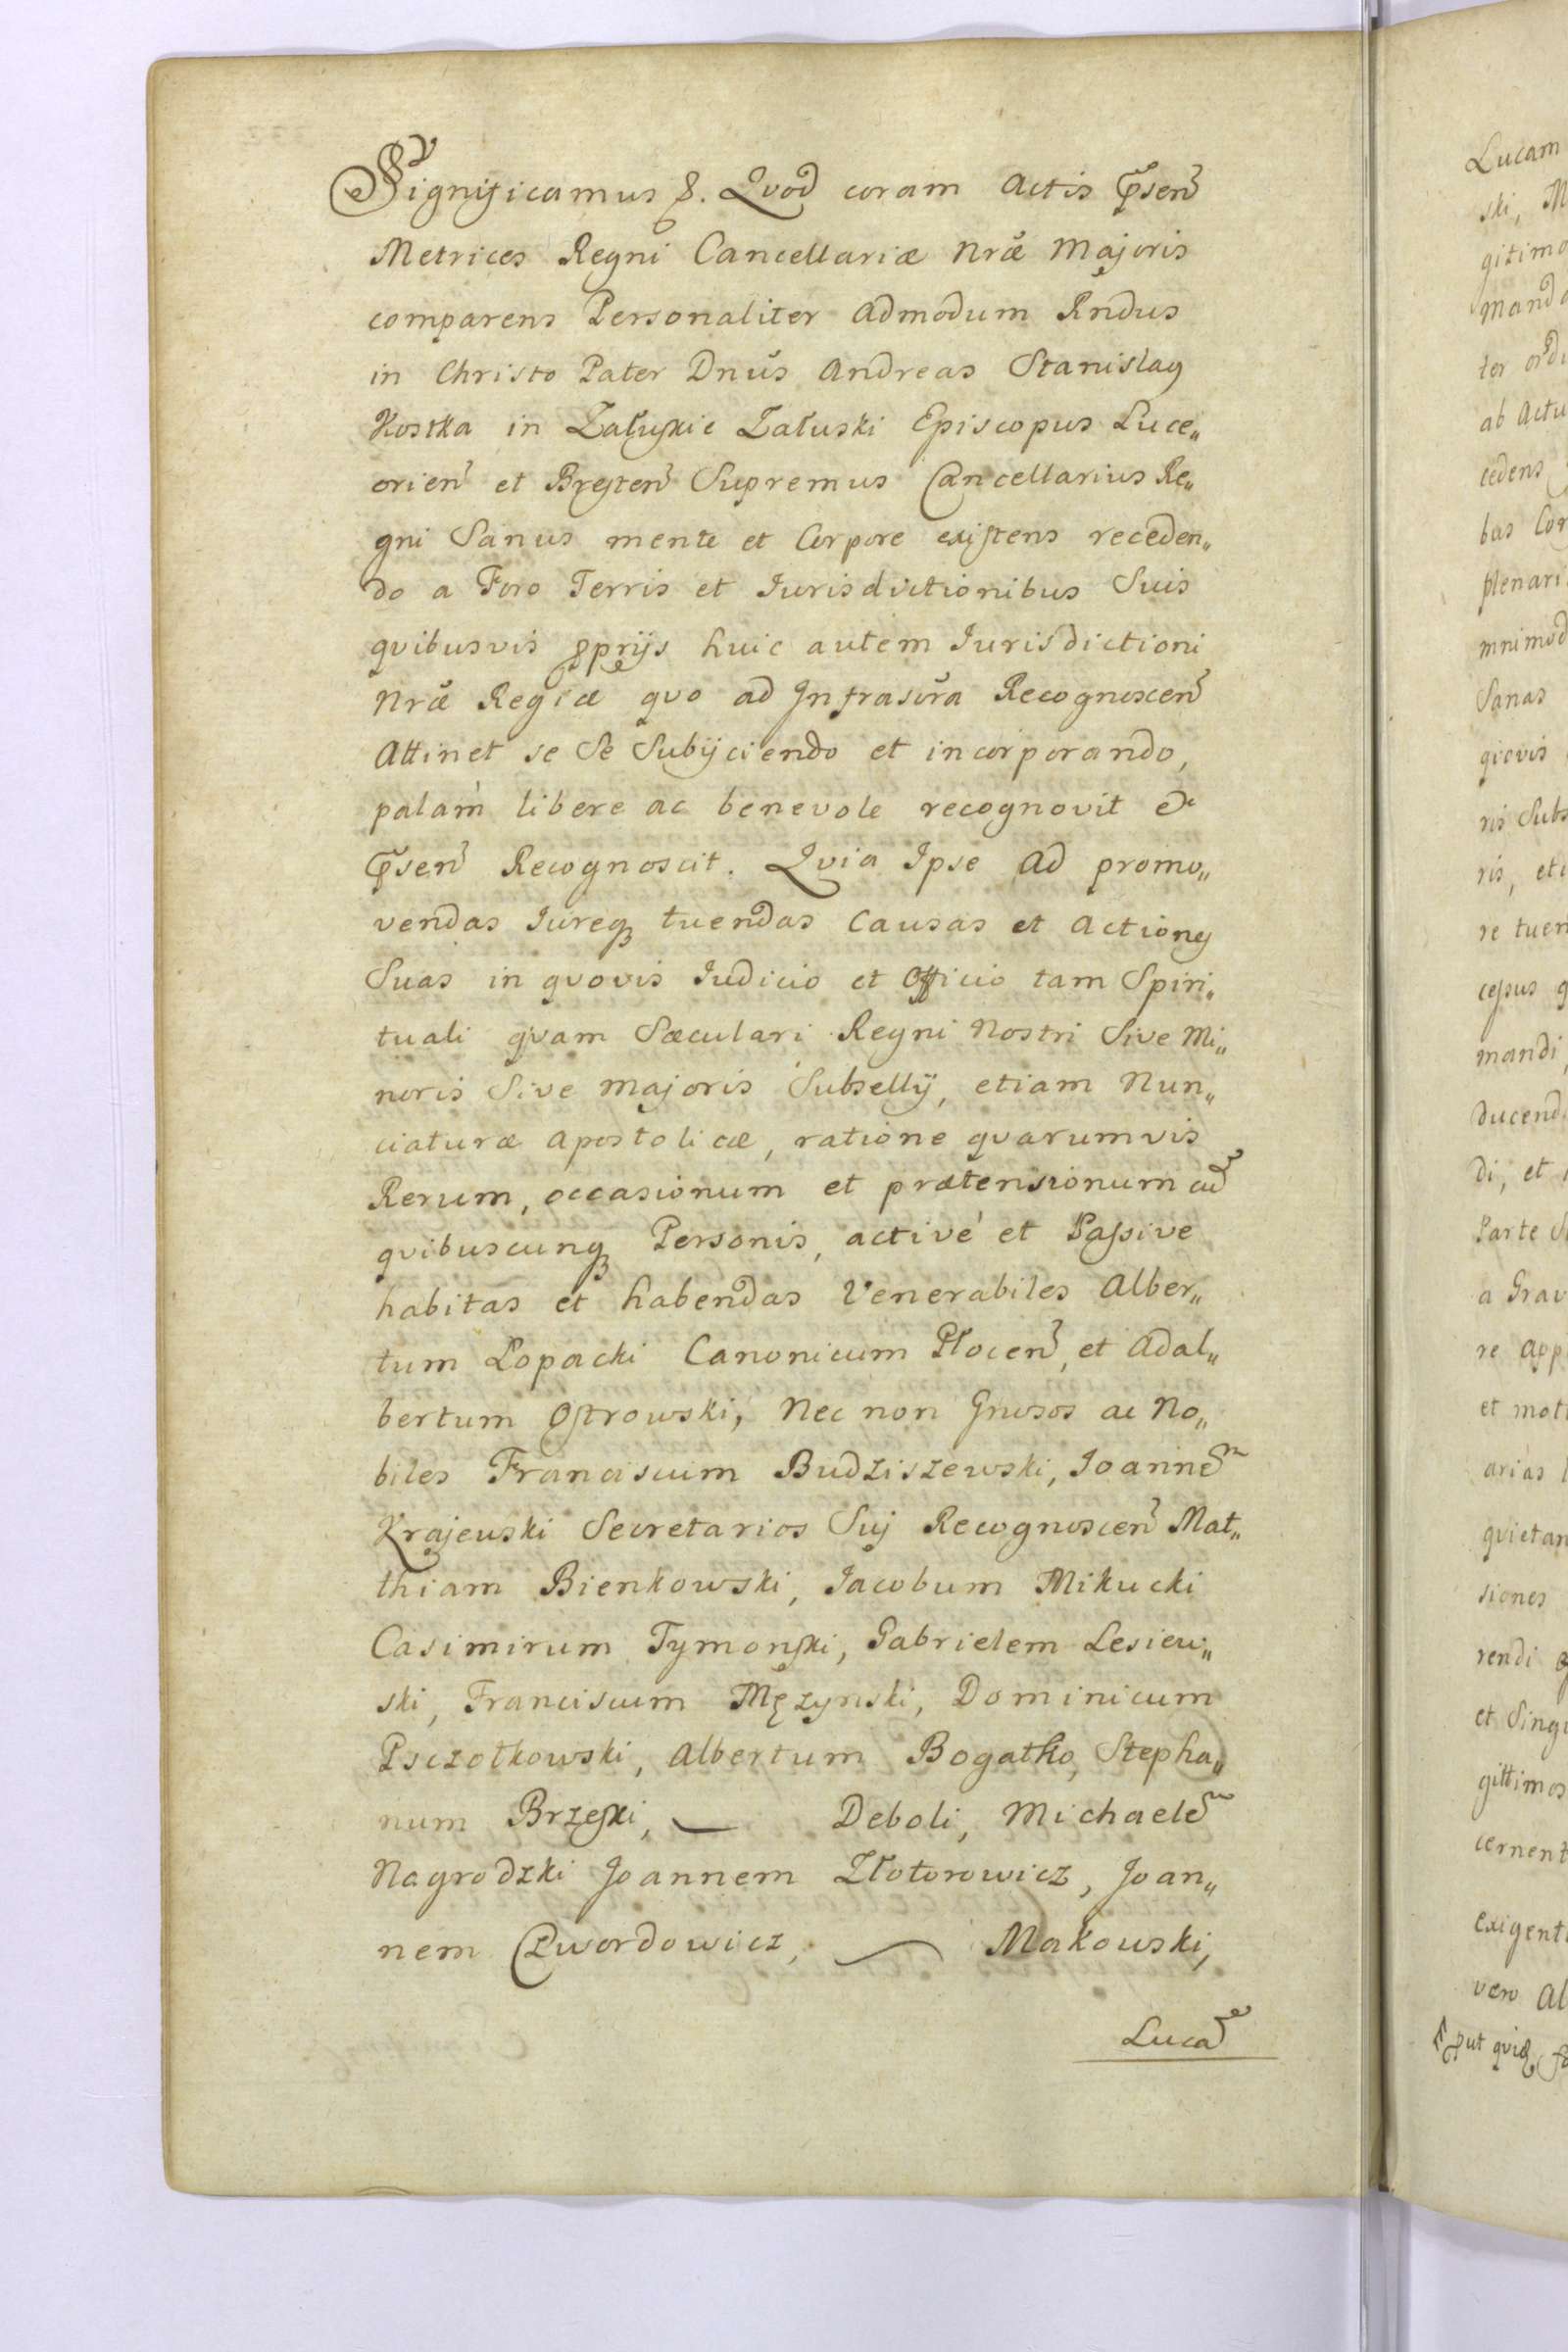 Significamus &. Qvod coram Actis Pñsen
Metrices Regni Cancellariæ Nræ Majoris
comparens Personaliter Admodum Rndus
in Christo Pater Dnus Andreas Stanislaus
Kostka in Załuskie Załuski Episcopus Luce„
orien et Bresten Supremus Cancellarius Re„
gni Sanus mente et Corpore existens receden„
do a Foro Terris et Iurisdictionibus Suis
qvibusvis pprijs huic autem Iurisdictioni
Nræ Regiæ qvo ad Infrascra Recognoscen
Attinet se Se Subijciendo et incorporando,
palam libere ac benevole recognovit &
Pñsen Recognoscit. Qvia Ipse Ad promo„
vendas Iureq tuendas Causas et Actiones
Suas in qvovis Iudicio et Officio tam Spiri„
tuali qvam Sæculari Regni Nostri Sive Mi„
noris Sive Majoris Subsellij, etiam Nun„
ciaturæ Apostolicæ, ratione qvarumvis
Rerum, occasionum et prætensionum cu
qvibuscunq Personis, activé et Passive
habitas et habendas Venerabiles Alber„
tum Łopacki Canonicum Płocen, et Adal„
bertum Ostrowski, Nec non Gnrosos ac No„
biles Franciscum Budziszewski, Joanne
Krajewski Secretarios Suj Recognoscen Mat„
thiam Bienkowski, Iacobum Mikucki
Casimirum Tymonski, Gabrielem Lesiew„
ski, Franciscum Mężynski, Dominicum
Psczołkowski, Albertum Bogatko, Stepha„
num Brzeski, — Deboli, Michaele
Nagrodzki Joannem Złotorowicz, Joan„
nem Cwordowicz, — Makowski,
Luca
Lucam
ski, M
gitimo
manda
ter ordi
ab actu
cedens
bas Cor
plenari
mnimod
Sanas
giovis
ris Subs
ris, eti
re tuen
cessus q
mandi,
ducend
di, et
Parte S
a Grav
re App
et moti
arias
qvietan
siones
rendi
et Singu
gittimos
cernent
exigent
vero Al
put qvid